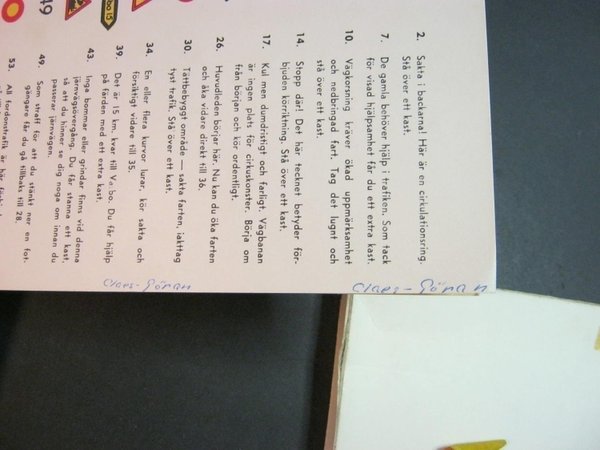 2. Sakta i backarna! Här är en cirkulationsring.
Stå över ett kast.
7. De gamla behöver hjälp i trafiken. Som tack
för visad hjälpsamhet får du ett extra kast.
10. Vägkorsning kräver ökad uppmärksamhet
och nedbringad fart. Tag det lugnt och
stå över ett kast.
14. Stopp där! Det här tecknet betyder för-
bjuden körriktning. Stå över ett kast.
17. Kul men dumdristigt och farligt. Vägbanan
är ingen plats för cirkuskonster. Börja om
från början och kör ordentligt.
26. Huvudleden börjar här. Nu kan du öka farten
och åka vidare direkt till 36.
30. Tättbebyggt område — sakta farten, iakttag
tyst trafik. Stå över ett kast.
34. En eller flera kurvor lurar, kör sakta och
försiktigt vidare till 35.
39. Det är 15 km. kvar till V a: bo. Du får hjälp
på färden med ett extra kast.
43. Inga bommar eller grindar finns vid denna
järnvägsövergång. Du får stanna ett kast
så att du hinner se dig noga om innan du
passerar järnvägen.
49. Som straff för att du stänkt ner en fot-
gängare får du gå tillbaks till 28.
53. All fordonstrafik är här
bo 15
49
Claes-Göran
Claes-Göran